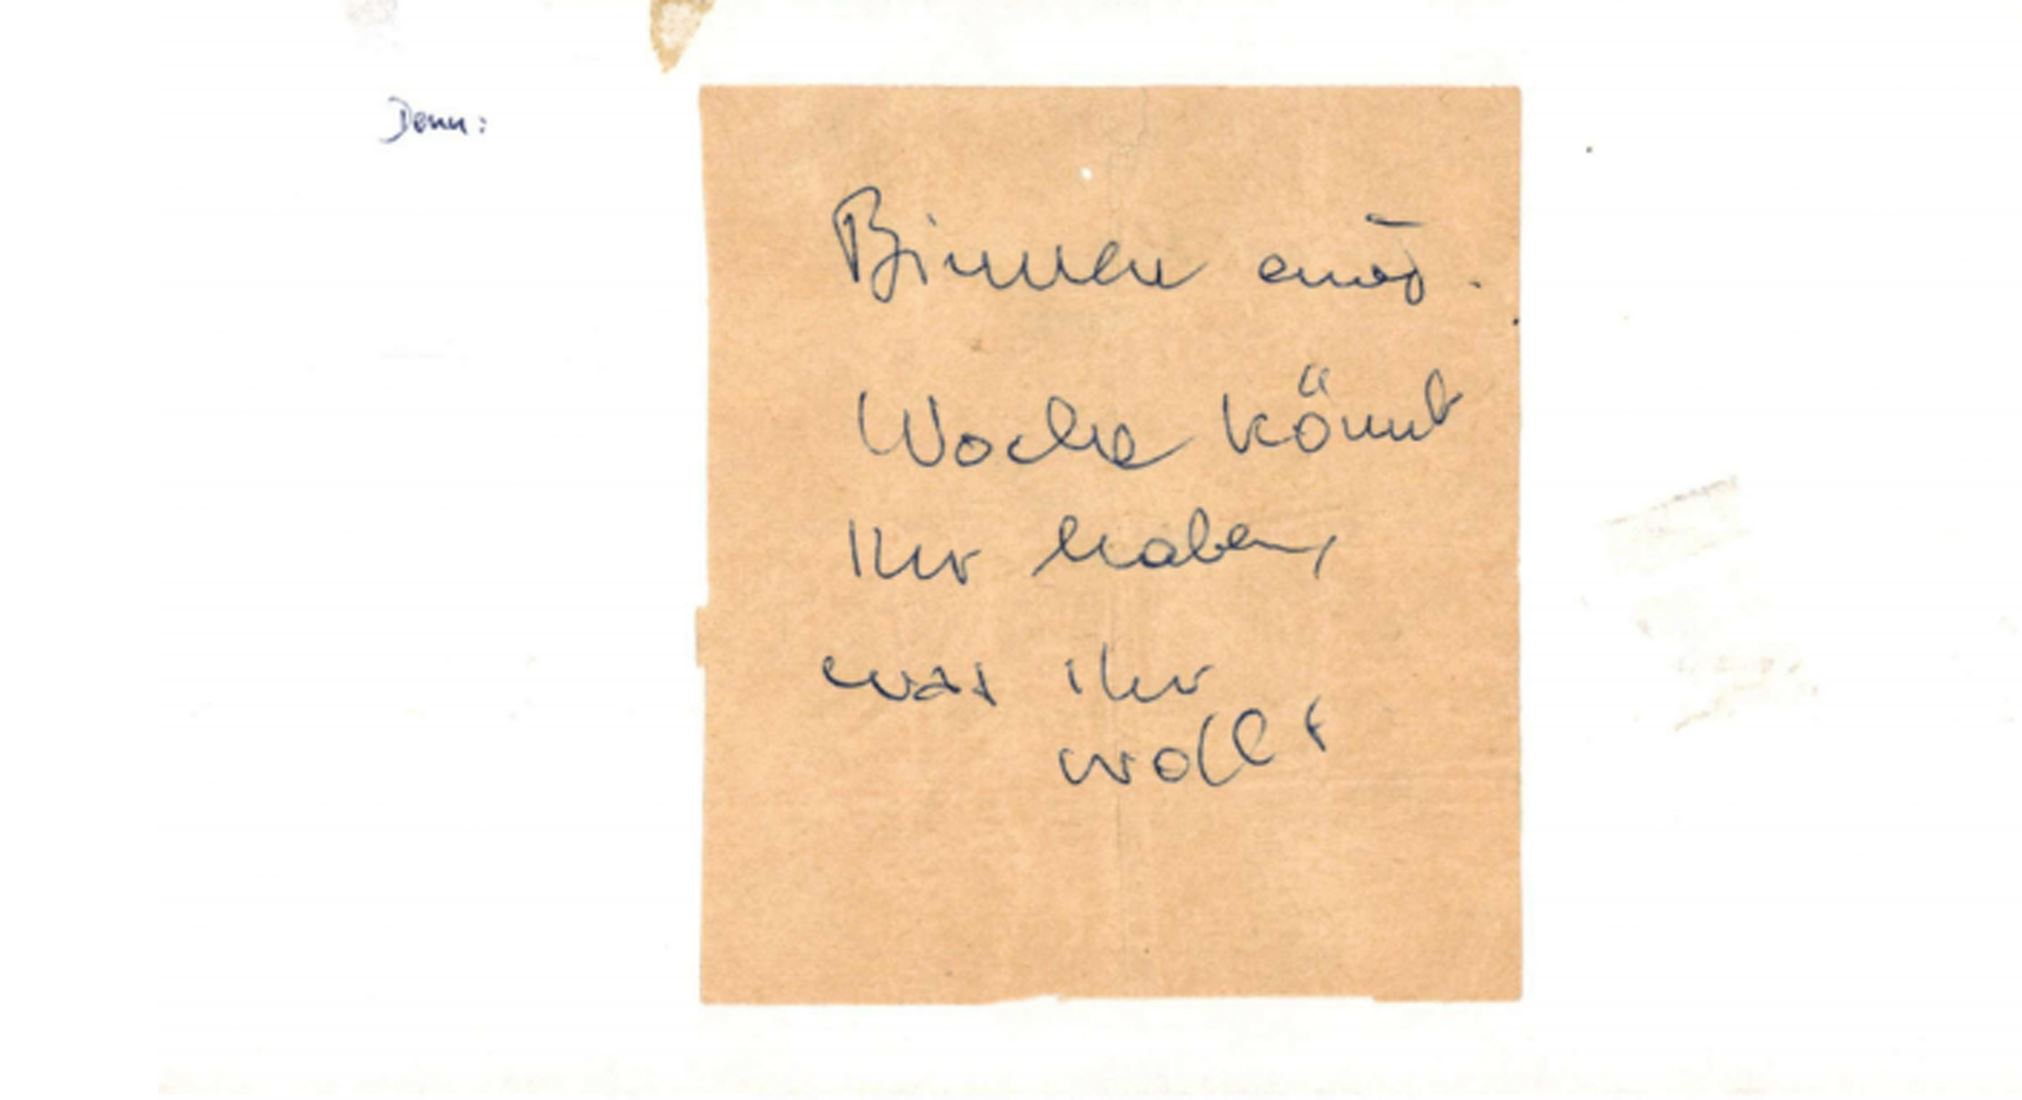 Denn:
Binnen
Woche könnt
Ihr haben,
was ihr
wollt